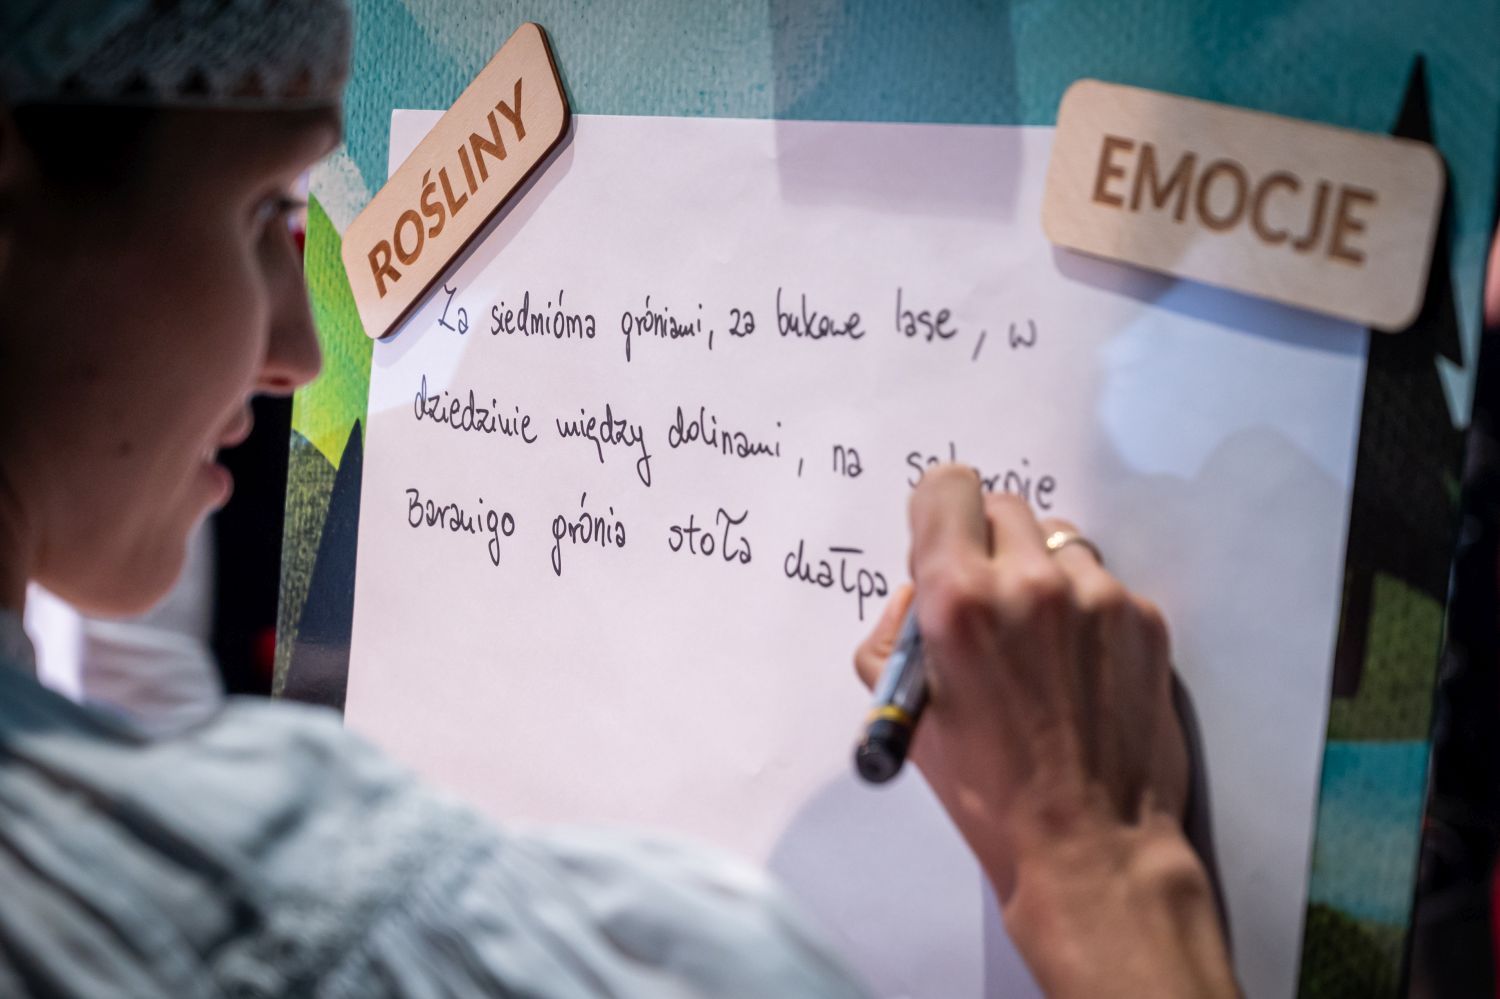 ROŚLINY
EMOCJE
Za siedmióma gróniami, za bukowe lase, w
dziedzinie między dolinami, na
Baranigo grónia stoła chałpa